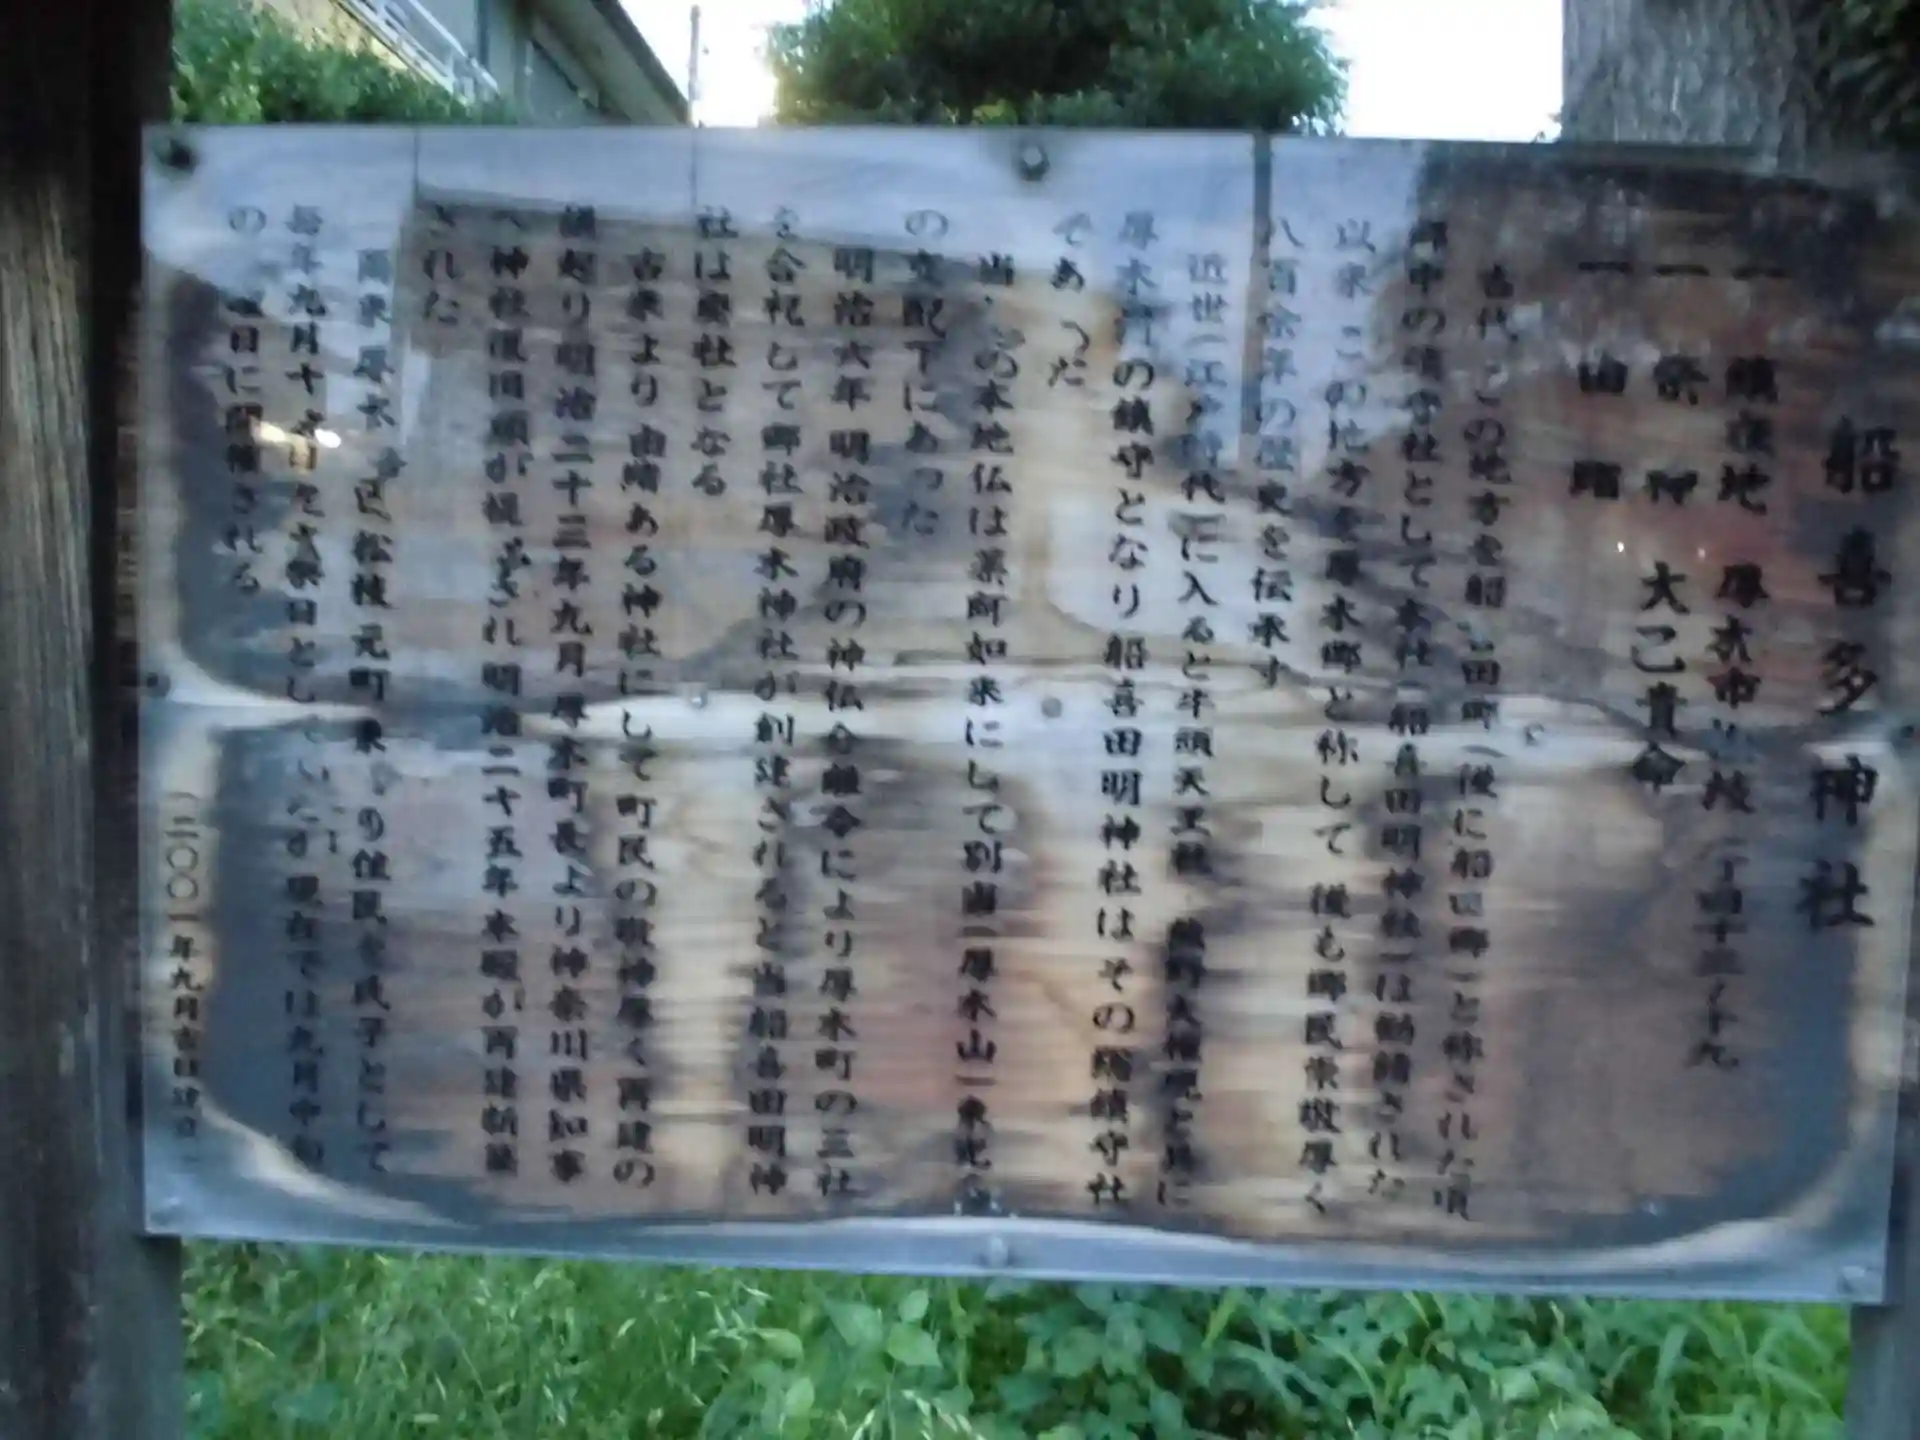 船喜多神社
一 鎮座地 厚木市 一丁目十三ノ十九
一 祭神 大己貴命
一 由緒
古代 この地方を船 田町(後に船田郷)と称された頃
郷中の鎮守社として本社(船喜田明神社)は勧請された
以来 この地方を厚木郷と称して 後も郷民崇敬厚く
八百余年の歴史を伝承す
近世(江戸時代)に入ると牛頭天王社 熊野大権現と共に
厚木町の鎮守となり船喜田明神社はその総鎮守社
であった
当 の本地仏は薬師如来にして別当(厚木山)東光
の支配下にあった
明治六年 明治政府の神仏分離令により厚木町の三社
を合祀して郷社厚木神社が創建されると当船喜田明神
社は廃社となる
古来より由緒ある神社にして町民の敬神厚く再建の
議起り明治二十三年九月厚木町長より神奈川県知事
へ神社復旧願が提出され 明治二十五年本殿が再建新築
された
爾来 厚木 松枝 元町 の住民を氏子として
毎年九月十 日を大祭日としていたが 現在では九月中旬
の 曜日に開催される
(二〇〇一年九月吉日建立)